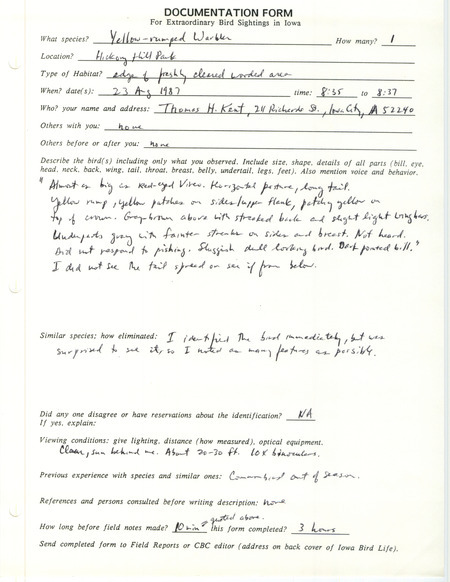 DOCUMENTATION FORM
For Extraordinary Bird Sightings in Iowa
What species? Yellow-rumped Warbler How many? 1
Location? Hickory Hill Park
Type of Habitat? edge of freshly cleared wooded area
When? date(s): 23 Aug 1987 time: 8:35 to 8:37
Who? your name and address: Thomas H. Kent, 211 Richards St., Iowa City, IA 52240
Others with you: none
Others before or after you: none
Describe the bird(s) including only what you observed. Include size, shape, details of all parts (bill, eye,
head, neck, back, wing, tail, throat, breast, belly, undertail, legs, feet). Also mention voice and behavior.
"Almost as big as Red-eyed Vireo. Horizontal posture, long tail.
Yellow rump, yellow patches on sides/upper flank, patchy yellow on
top of crown. Gray-brown above with streaked back and slight light wingbars.
Underparts gray with fainter streaks on sides and breast. Not heard.
Did not respond to pishing. Sluggish dull looking bird. Dark pointed bill."
I did not see the tail spread or see it from below.
Similar species; how eliminated: I identified the bird immediately, but was
surprised to see it, so I noted as many features as possible.
Did any one disagree or have reservations about the identification? NA
If yes, explain:
Viewing conditions: give lighting, distance (how measured), optical equipment.
Clear, sun behind me. About 20-30 ft. 10x binoculars.
Previous experience with species and similar ones: Common bird out of season.
References and persons consulted before writing description: none
quoted above.
How long before field notes made? 10 min this form completed? 3 hours
Send completed form to Field Reports or CBC editor (address on back cover of Iowa Bird Life).